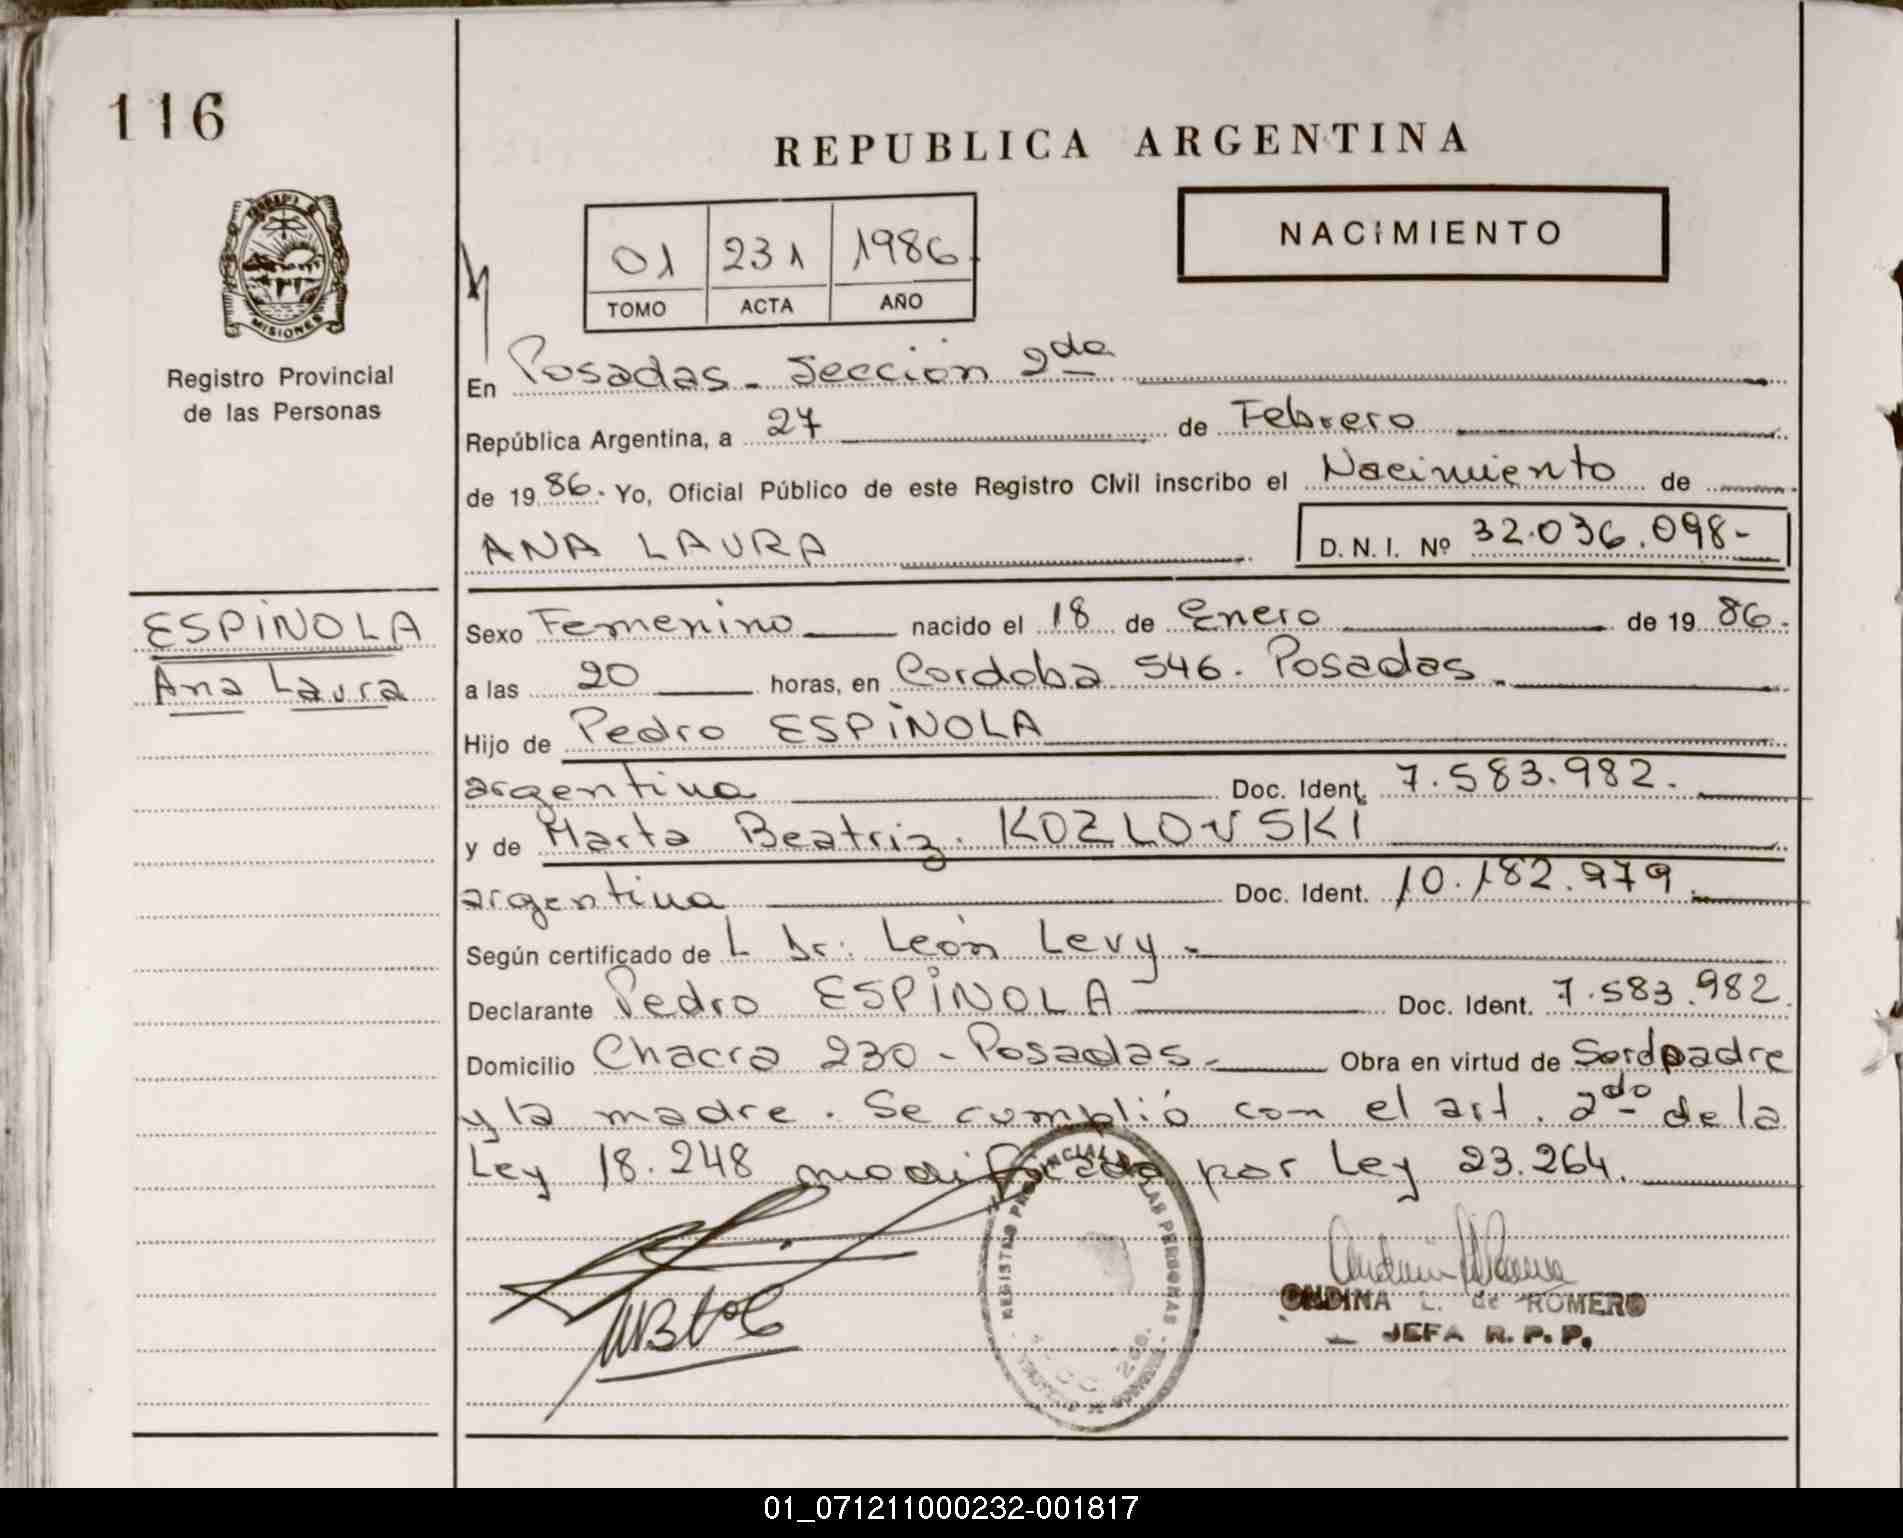 116
REPUBLICA ARGENTINA
NACIMIENTO
01 231 1986
TOMO ACTA AÑO
MISIONES
Registro Provincial
de las Personas
En Posadas - Sección 2da
República Argentina, a 27 de Febrero
de 1986. Yo, Oficial Público de este Registro Civil inscribo el Nacimiento de
ANA LAURA D.N.I. Nº 32.036.098-
ESPINOLA
Ana Laura
Sexo Femenino nacido el 18 de Enero de 1986.
a las 20 horas, en Cordoba 546. Posadas.
Hijo de Pedro ESPINOLA
argentino Doc. Ident. 7.583.982.
y de Marta Beatriz. KOZLOVSKI
argentina Doc. Ident. 10.182.979.
Según certificado de L Dr. León Levy.
Declarante Pedro ESPINOLA Doc. Ident. 7.583.982.
Domicilio Chacra 230 - Posadas. Obra en virtud de Ser padre
y la madre. Se cumplió con el art. 2do de la
Ley 18.248 modificada por Ley 23.264.
REGISTRO PROVINCIAL DE LAS PERSONAS
ONDINA L. de ROMERO
JEFA R.P.P.
01_071211000232-001817